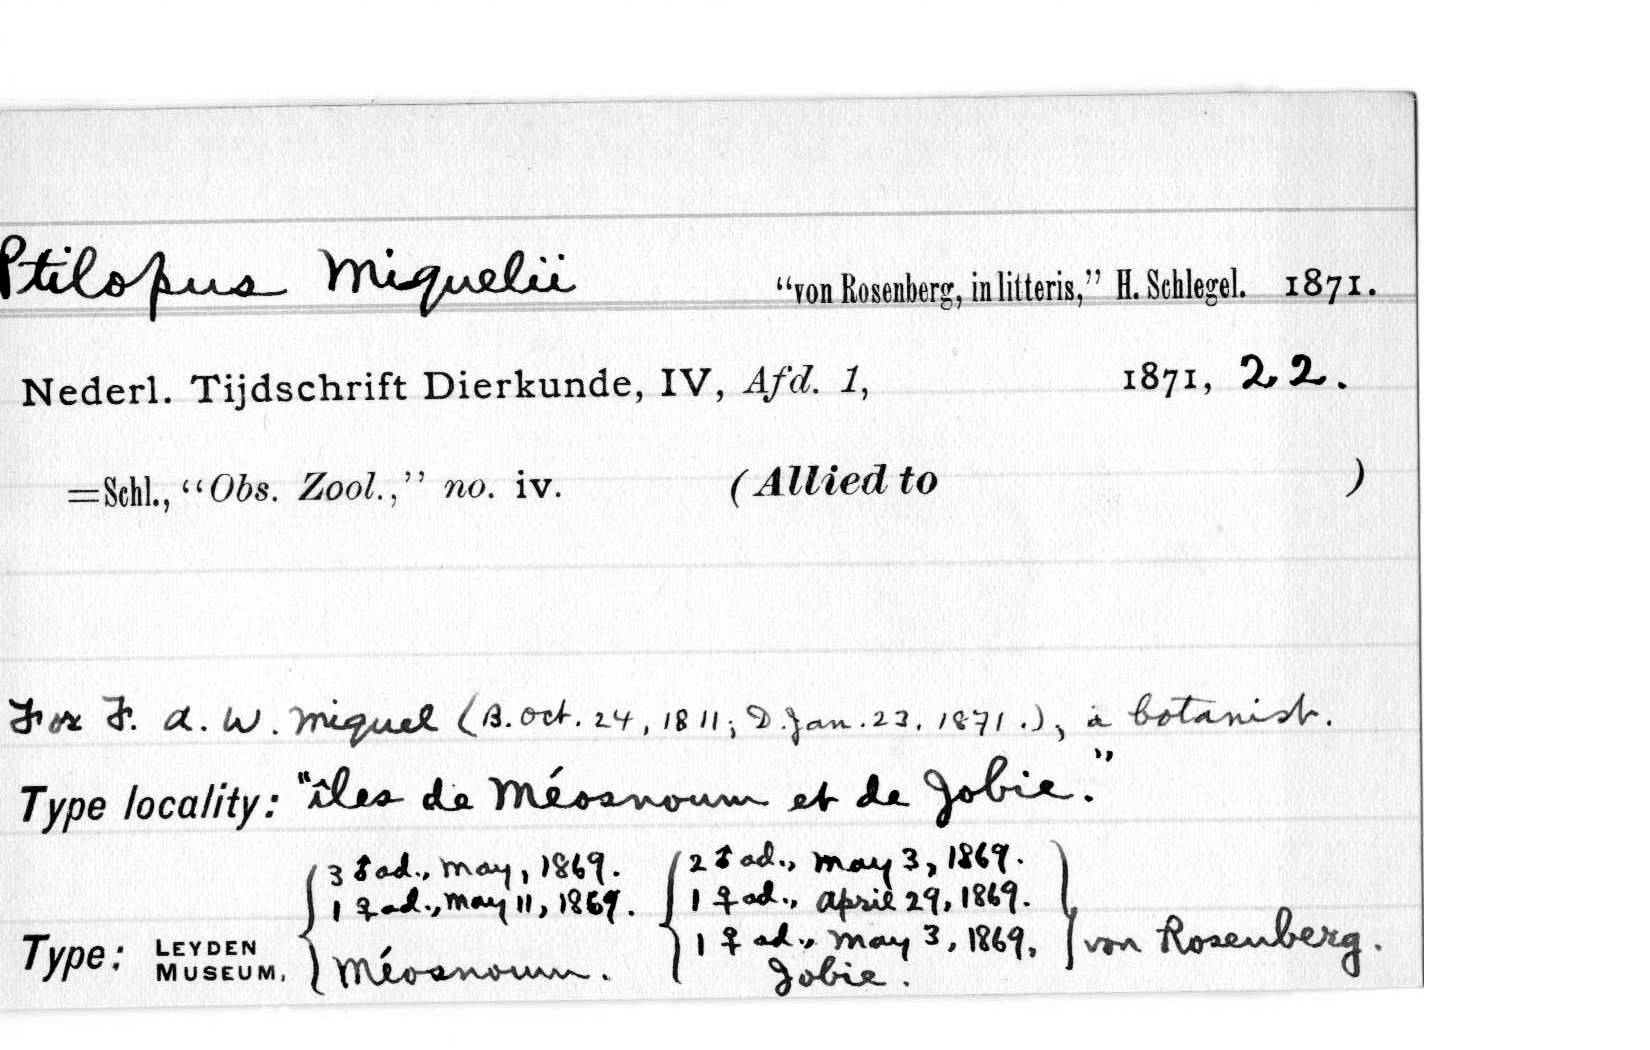 Ptilopus Miquelii "von Rosenberg, in litteris," H. Schlegel. 1871.
Nederl. Tijdschrift Dierkunde, IV, Afd. 1, 1871, 22.
=Schl., "Obs. Zool.," no. iv. (Allied to )
For F. A. W. Miquel (B. Oct. 24, 1811; D. Jan. 23, 1871.), a botanist.
Type locality: "îles de Méosnoum et de Jobie."
3 ♂ ad., May, 1869. 2 ♂ ad., May 3, 1869.
1 ♀ ad., May 11, 1869. 1 ♀ ad., April 29, 1869.
Type: LEYDEN MUSEUM, 1 ♀ ad., May 3, 1869, von Rosenberg.
Méosnoum. Jobie.